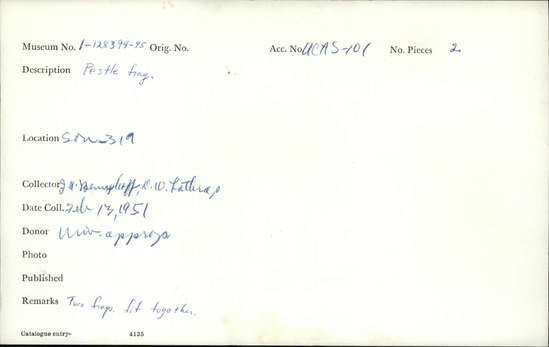 Museum No. 1-128394-95 Orig. No. Acc. No. UCAS-101 No. Pieces 2
Description Pestle frag.
Location Son-319
Collector D.W. Lathrap
Date Coll. Feb 13, 1951
Donor Univ. approp
Photo
Published
Remarks Two frags. fit together.
Catalogue entry- 4135